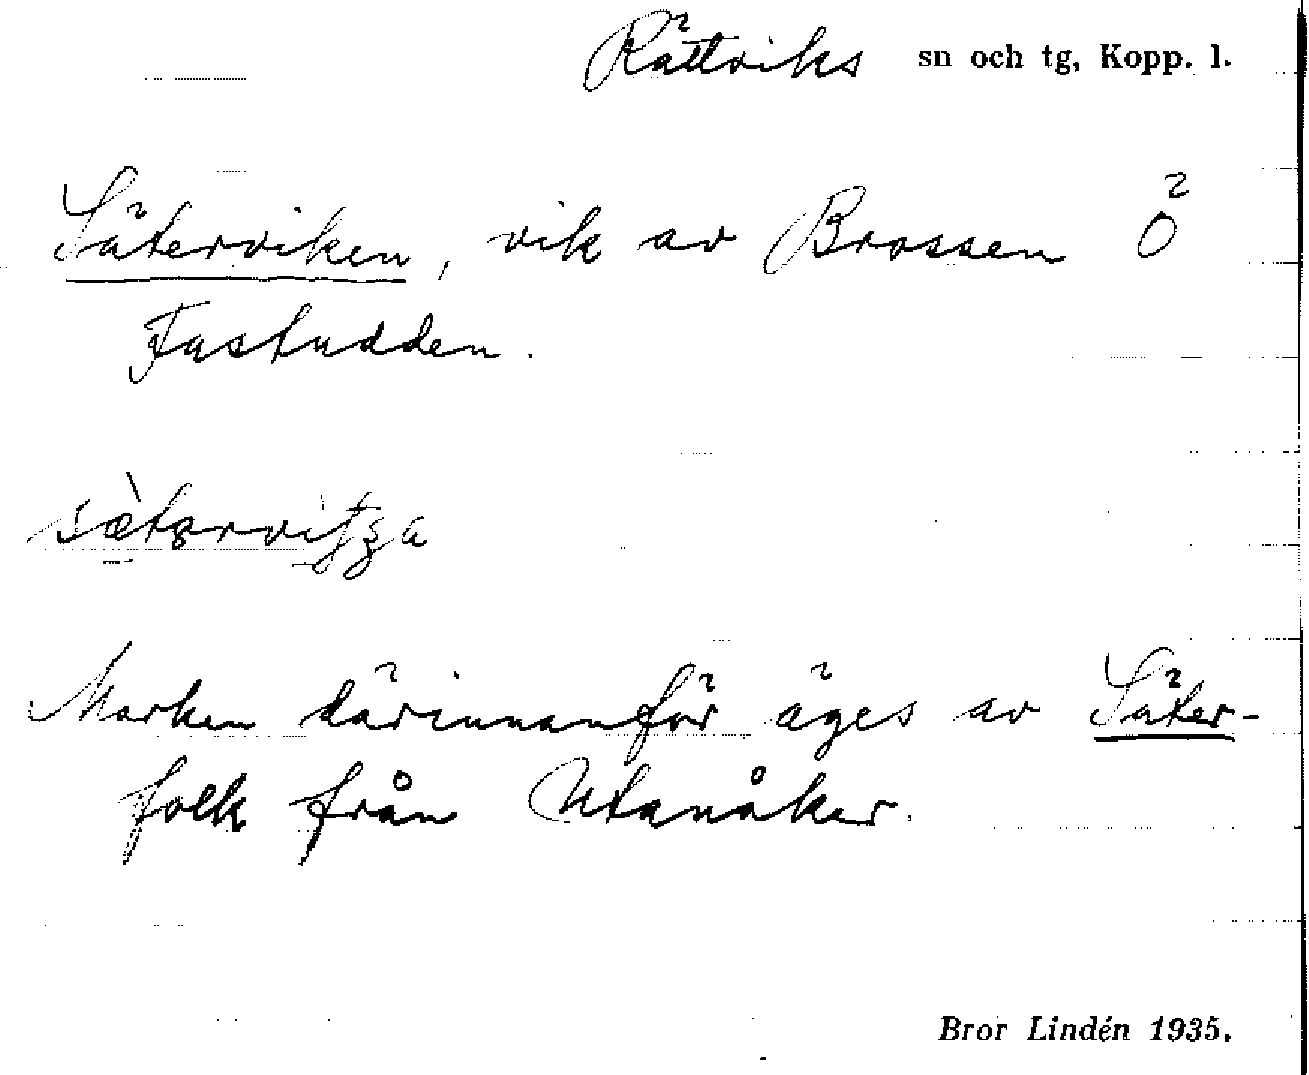 Rättviks sn och tg, Kopp. l.
Säterviken, vik av Brossen Ö
Fastudden.
Marken därinnanför äges av Säter-
folk från Utanåker.
Bror Lindén 1935.